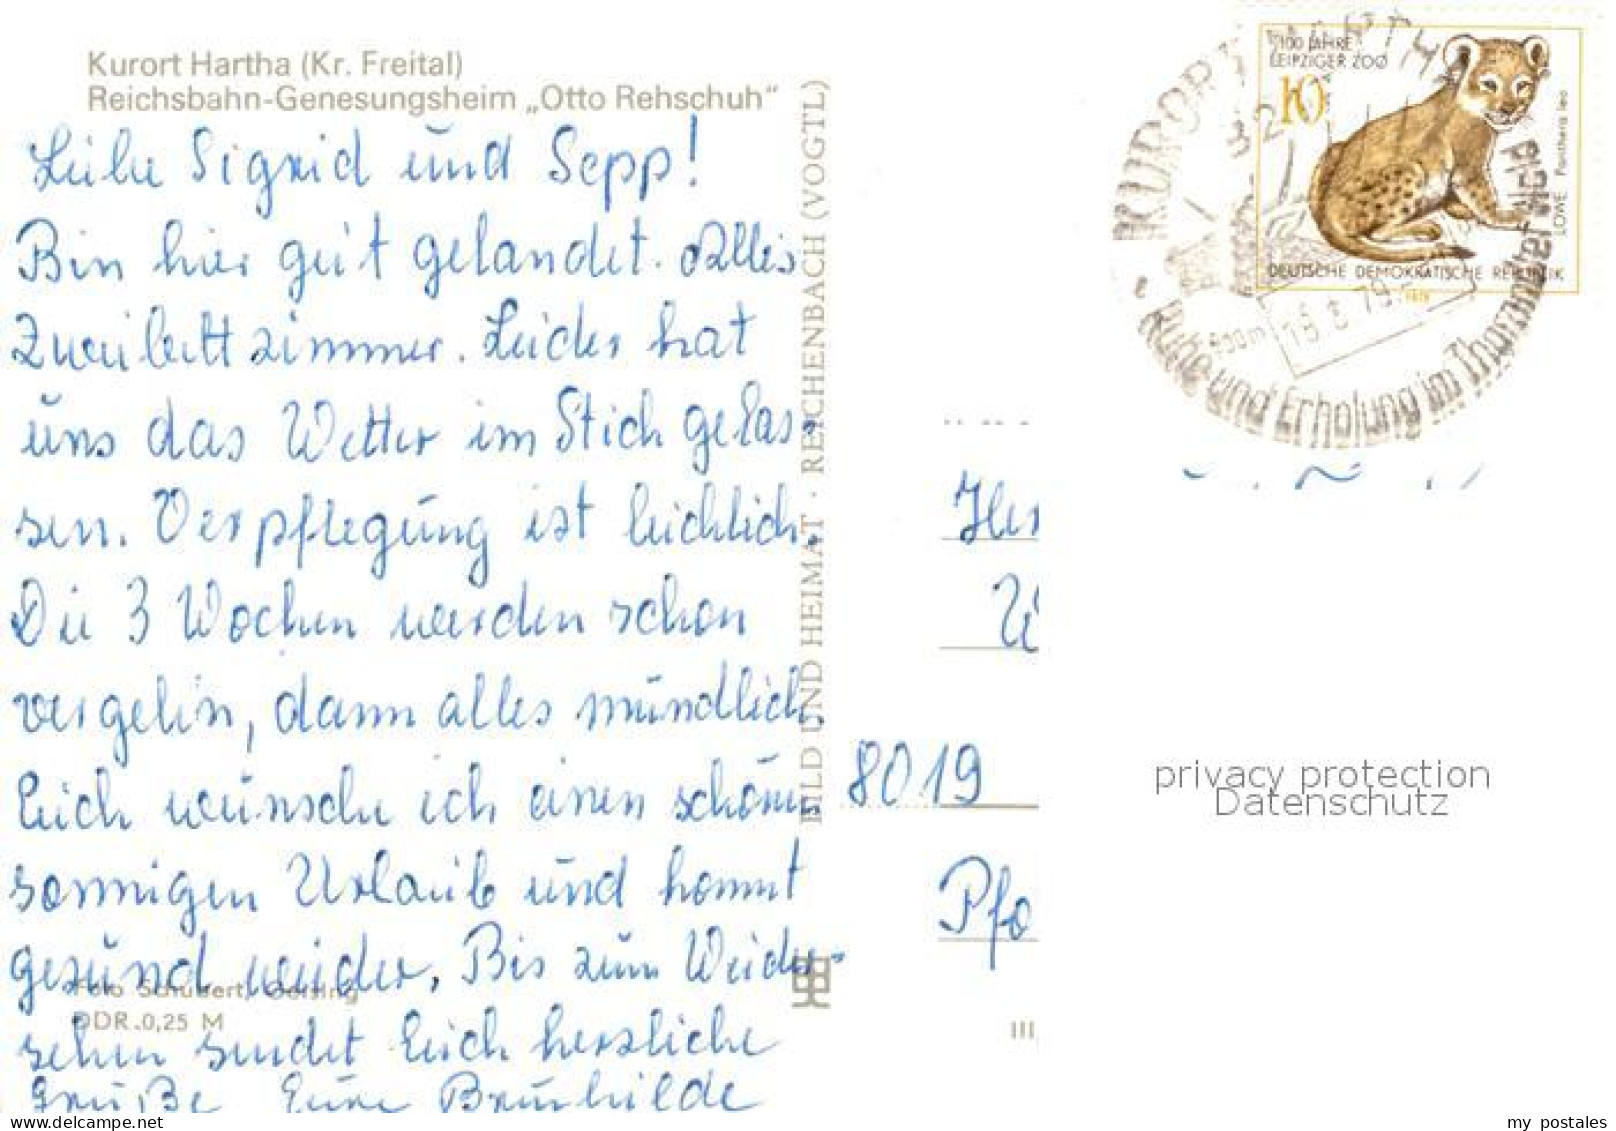 Kurort Hartha (Kr. Freital)
Reichsbahn-Genesungsheim „Otto Rehschuh"
Liebe Sigrid und Sepp!
Bin hier gut gelandet. Alles
Zweibettzimmer. Leider hat
uns das Wetter im Stich gelas-
sen. Verpflegung ist reichlich.
Die 3 Wochen werden schon
vergehn, dann alles mündlich.
Euch wünsche ich einen schönen
sonnigen Urlaub und kommt
gesund wieder. Bis zum Wieder-
sehen sendet Euch herzliche
Grüße Eure Brunhilde
Foto Schubert, Geising
DDR 0,25 M
BILD UND HEIMAT · REICHENBACH (VOGTL)
III
100 JAHRE
LEIPZIGER ZOO
10
LÖWE Panthera leo
DEUTSCHE DEMOKRATISCHE REPUBLIK
1978
KURORT HARTHA
Ruhe und Erholung im Tharandter Wald
8019
Pfo
privacy protection
Datenschutz
my postales